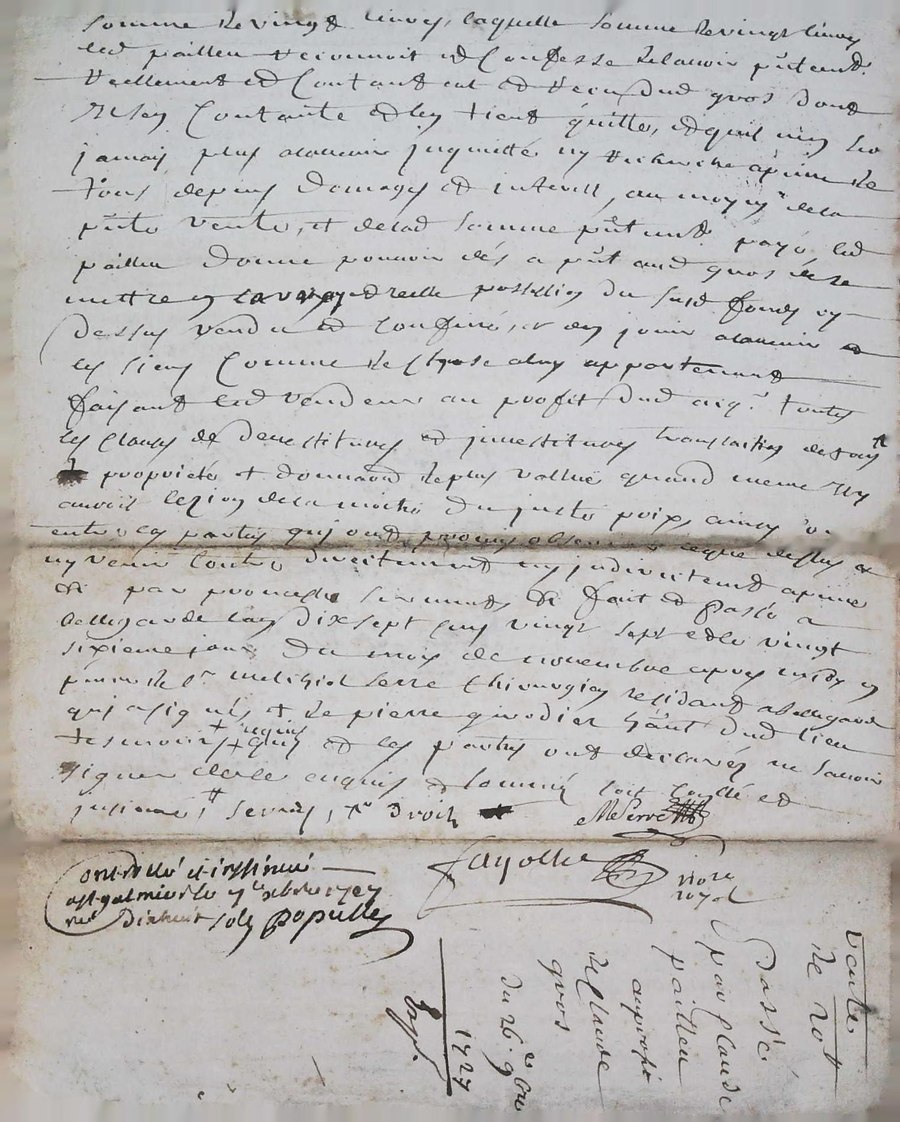 somme de vingt livres, laquelle somme de vingt livres
led pailleu reconnoit et Confesse delavoir p̃ntemt
reellement et Contant eut et receu dud gros dont
se sen Contante et len tient quitte, et quil nen sera
jamais plus alavenir inquietté ny recherché apeine de
tous depens domages et interest, au moyen de la
p̃nte vente, et delad somme p̃ntemt payé led
pailleu donne pouvoir dés a p̃nt aud gros de se
mettre en la vraye et reelle possession du susd fonds cy
dessus vendu et confiné, et den jouir alavenir
les siens Comme de Chose aluy appartenant
faisant led vendeur au profit dud acq.r toutes
les Clauses de devestitures et jnvestitures translatives de
propriété et donnant le plus vallue quand meme il y
auroit lezion de la moitié du juste prix, ainsy
entre les parties qui ont promis observer ceque dessus
ny venir Contre directement ny jndirectement apeine
et par promesse serment, et fait et passé a
bellegarde lan dix sept cens vingt sept et le vingt
sixieme jour du mois de novembre apres midy en
p̃nce de sr melchiol serre Chirurgien residant abellegarde
qui a signé et de pierre girodier hãnt dud lieu
tesmoins et les parties ont declarés ne savoir
signer de ce enquis et sommés soit Scellé et
MSerre
fayolle
nore
royal
Controllé et insinué
ast galmier le
recu dixhuit sols popullus
vente
de 20#
passée
par Claude
pailleu
au profit
de Claude
gros
du 26.e 9bre
1727
Exp.